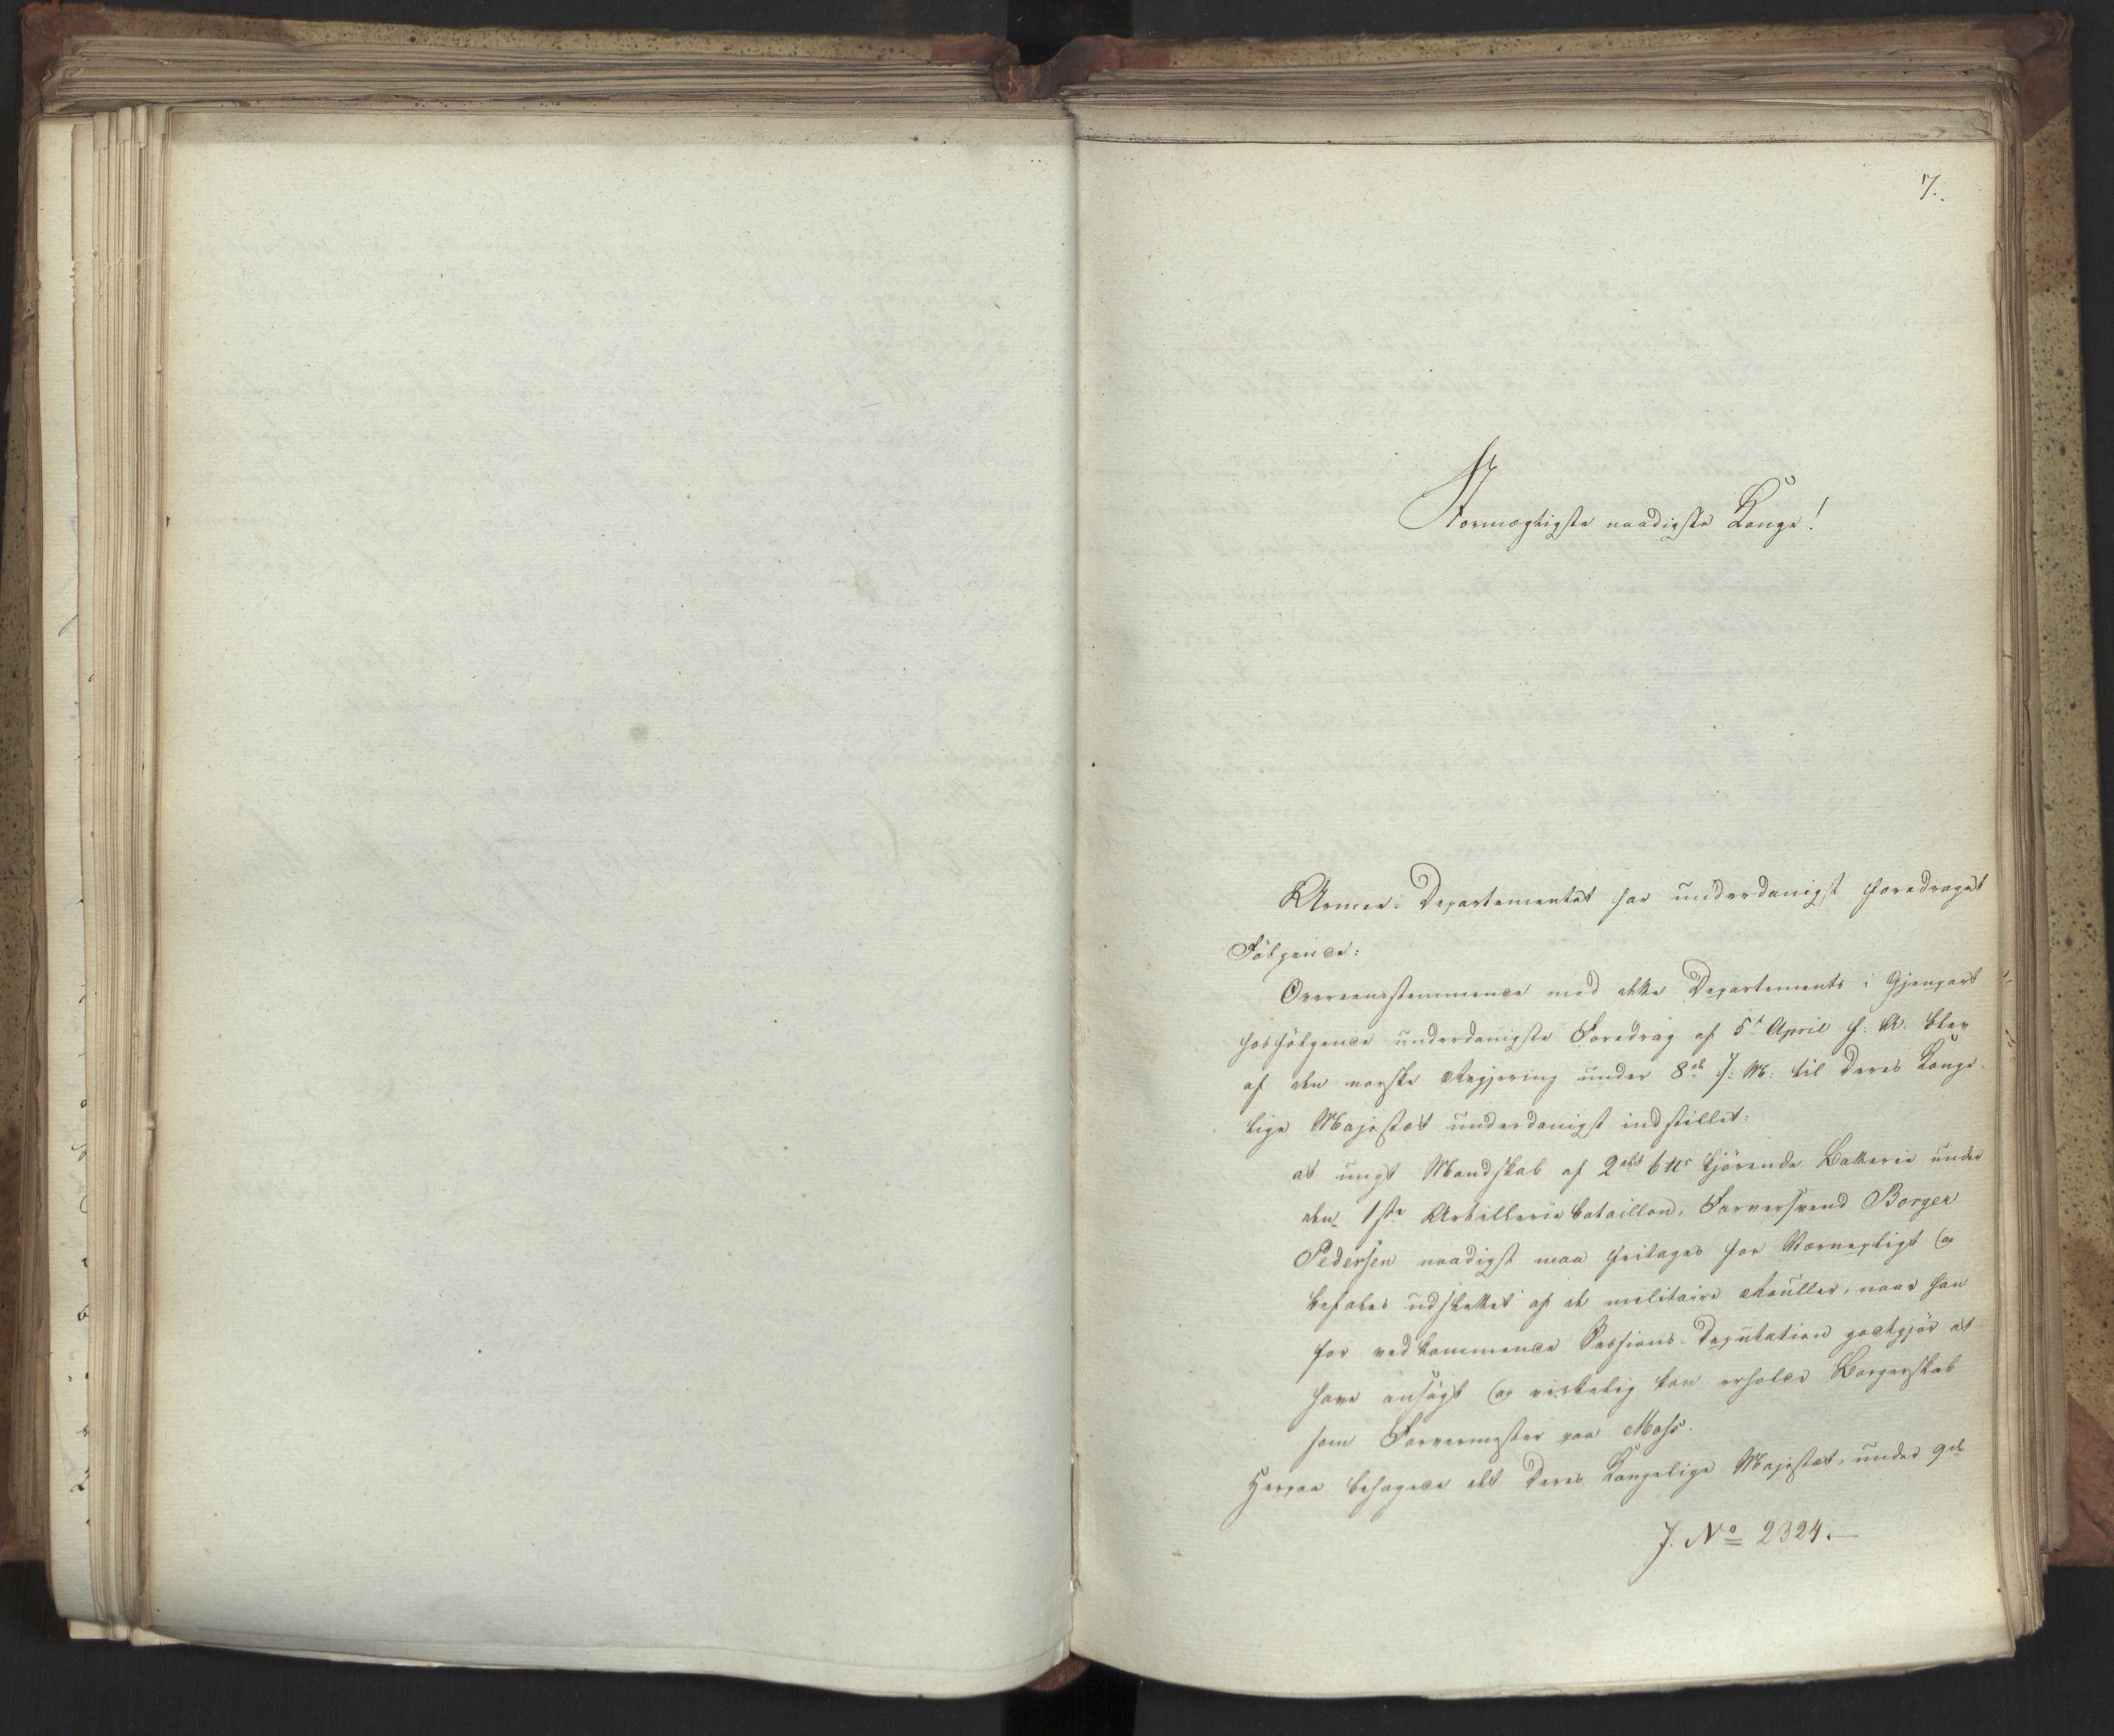 7.
Stormægtigste naadigste Konge!
Armee-Departementet har underdanigst foredraget
Følgende:
Overeensstemmende med dette Departements i Gjenpart
hosfølgende underdanigste Foredrag af 5te April d: A: blev
af den norske Regjering under 8de f: M: til Deres Konge-
lige Majestæt underdanigst indstillet:
at ungt Mandskab af 2det 6 ₶r kjørende Batterie under
den 1ste Artilleriebataillon, Farversvend Borger
Pedersen naadigst maa fritages for Værnepligt og
befales udslettet af de militaire Rouller, naar han
for vedkommende Sessions-Deputation godtgjør at
have ansøgt og virkelig kan erholde Borgerskab
som Farvermester paa Moss.
Herpaa behagede det Deres Kongelige Majestæt, under 9de
J. No 2324.—